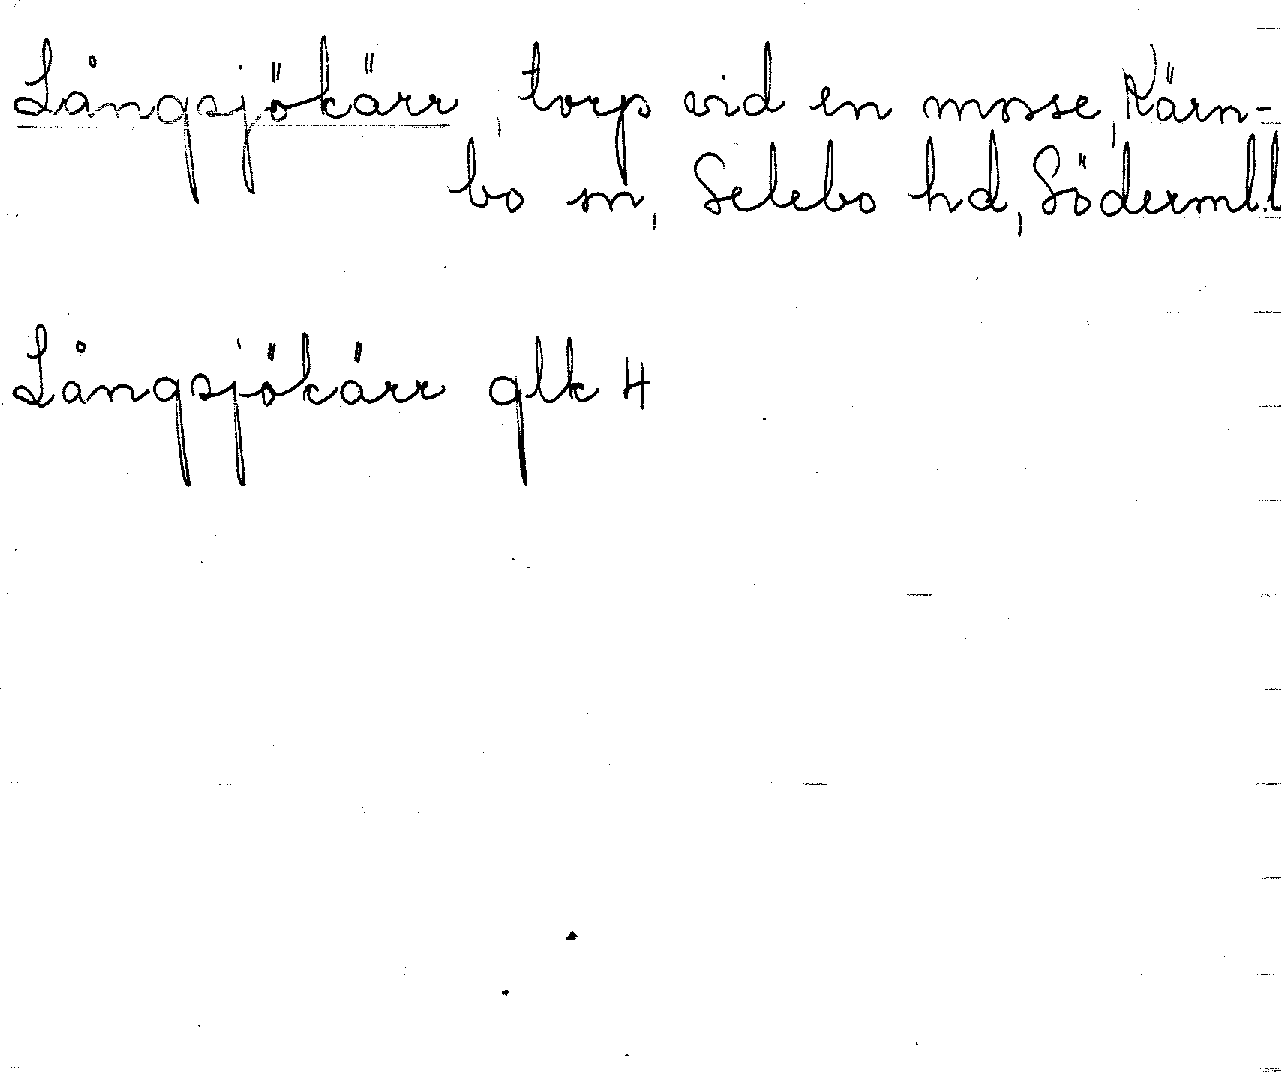 Långsjökärr, torp vid en mosse, Kärn-
bo sn, Selebo hd, Södermll
Långsjökärr glk 4